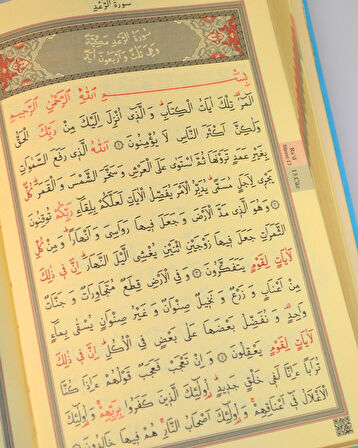 سورة الرعد
سُورَةُ الرَّعْدِ مَكِّيَّةٌ
وَهِيَ ثَلَاثٌ وَأَرْبَعُونَ آيَةً
بِسْمِ اللّٰهِ الرَّحْمٰنِ الرَّحِيمِ
الٓمٓرٰ تِلْكَ اٰيَاتُ الْكِتَابِ وَالَّذٖٓي اُنْزِلَ اِلَيْكَ مِنْ رَبِّكَ الْحَقُّ
وَلٰكِنَّ اَكْثَرَ النَّاسِ لَا يُؤْمِنُونَ ۝ اَللّٰهُ الَّذٖي رَفَعَ السَّمٰوَاتِ
بِغَيْرِ عَمَدٍ تَرَوْنَهَا ثُمَّ اسْتَوٰى عَلَى الْعَرْشِ وَسَخَّرَ الشَّمْسَ وَالْقَمَرَ كُلٌّ
يَجْرٖي لِاَجَلٍ مُسَمًّى يُدَبِّرُ الْاَمْرَ يُفَصِّلُ الْاٰيَاتِ لَعَلَّكُمْ بِلِقَٓاءِ رَبِّكُمْ تُوقِنُونَ
۝ وَهُوَ الَّذٖي مَدَّ الْاَرْضَ وَجَعَلَ فٖيهَا رَوَاسِيَ وَاَنْهَارًا وَمِنْ كُلِّ
الثَّمَرَاتِ جَعَلَ فٖيهَا زَوْجَيْنِ اثْنَيْنِ يُغْشِي الَّيْلَ النَّهَارَ اِنَّ فٖي ذٰلِكَ
لَاٰيَاتٍ لِقَوْمٍ يَتَفَكَّرُونَ ۝ وَفِي الْاَرْضِ قِطَعٌ مُتَجَاوِرَاتٌ وَجَنَّاتٌ
مِنْ اَعْنَابٍ وَزَرْعٌ وَنَخٖيلٌ صِنْوَانٌ وَغَيْرُ صِنْوَانٍ يُسْقٰى بِمَٓاءٍ
وَاحِدٍ وَنُفَضِّلُ بَعْضَهَا عَلٰى بَعْضٍ فِي الْاُكُلِ اِنَّ فٖي ذٰلِكَ
لَاٰيَاتٍ لِقَوْمٍ يَعْقِلُونَ ۝ وَاِنْ تَعْجَبْ فَعَجَبٌ قَوْلُهُمْ ءَاِذَا كُنَّا
تُرَابًا ءَاِنَّا لَفٖي خَلْقٍ جَدٖيدٍ اُولٰٓئِكَ الَّذٖينَ كَفَرُوا بِرَبِّهِمْ وَاُولٰٓئِكَ
الْاَغْلَالُ فٖٓي اَعْنَاقِهِمْ وَاُولٰٓئِكَ اَصْحَابُ النَّارِ هُمْ فٖيهَا خَالِدُونَ
Ra'd
Suresi 13
13.Cüz